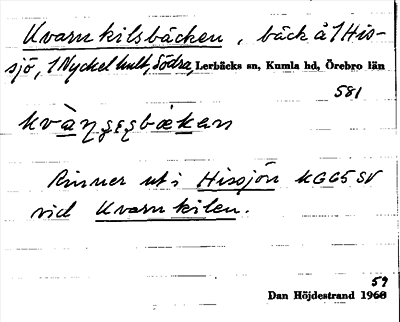 Kvarnkilsbäcken, bäck å 1 His-
sjö, 1 Nyckelhult, Södra, Lerbäcks sn, Kumla hd, Örebro län
581
Rinner ut i Hissjön KGG5 SV
vid Kvarnkilen.
59
Dan Höjdestrand 1960